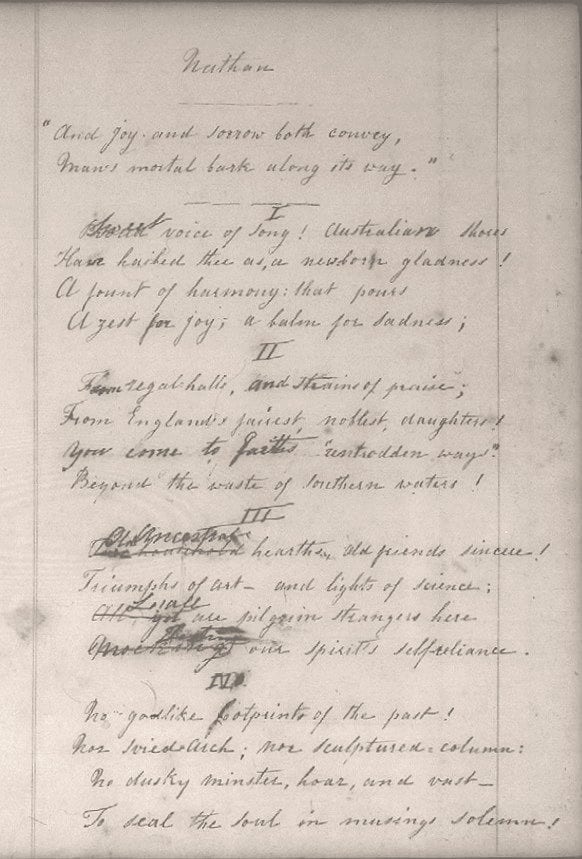 Nathan
"And joy and sorrow both convey,
Man's mortal bark along its way."
I
voice of Song! Australian shores
Have hailed thee as, a newborn gladness!
A fount of harmony: that pours
A zest for joy; a balm for sadness;
II
From regal halls, and strains of praise;
From England's fairest, noblest, daughters!
You come to "untrodden ways".
Beyond the waste of Southern waters!
III
Old Ancestral
hearths, old friends sincere!
Triumphs of art— and lights of science;
are pilgrim strangers here
our spirit's selfreliance.
IV
No godlike footprints of the past!
Nor Arch; nor sculptured=column:
No dusky minster, hoar, and vast—
To seal the soul in musings solemn!